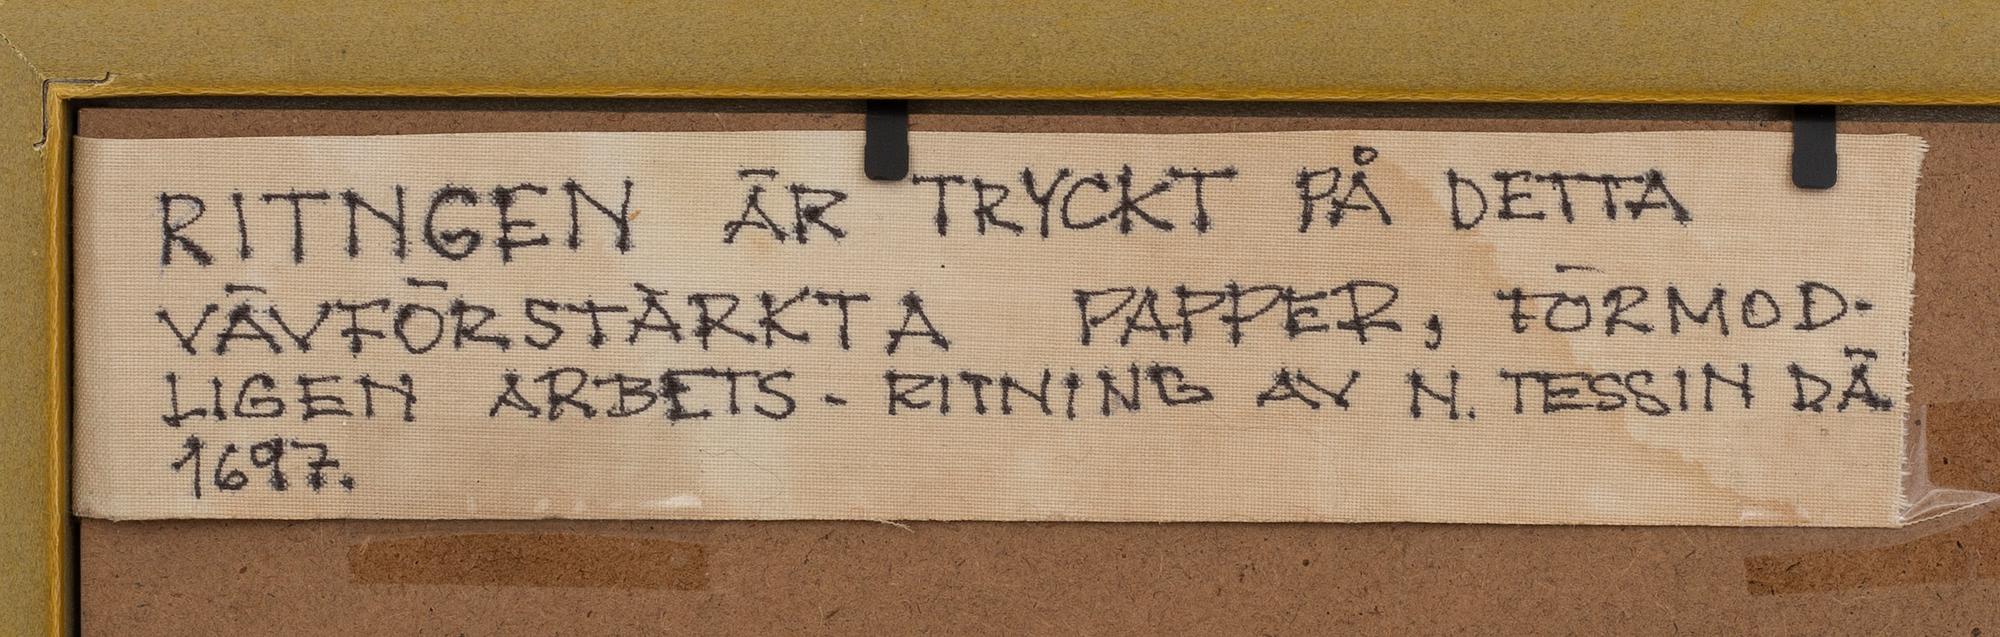 RITNGEN ÄR TRYCKT PÅ DETTA
VÄVFÖRSTÄRKTA PAPPER, FÖRMOD-
LIGEN ARBETS-RITNING AV N. TESSIN DÄ
1697.